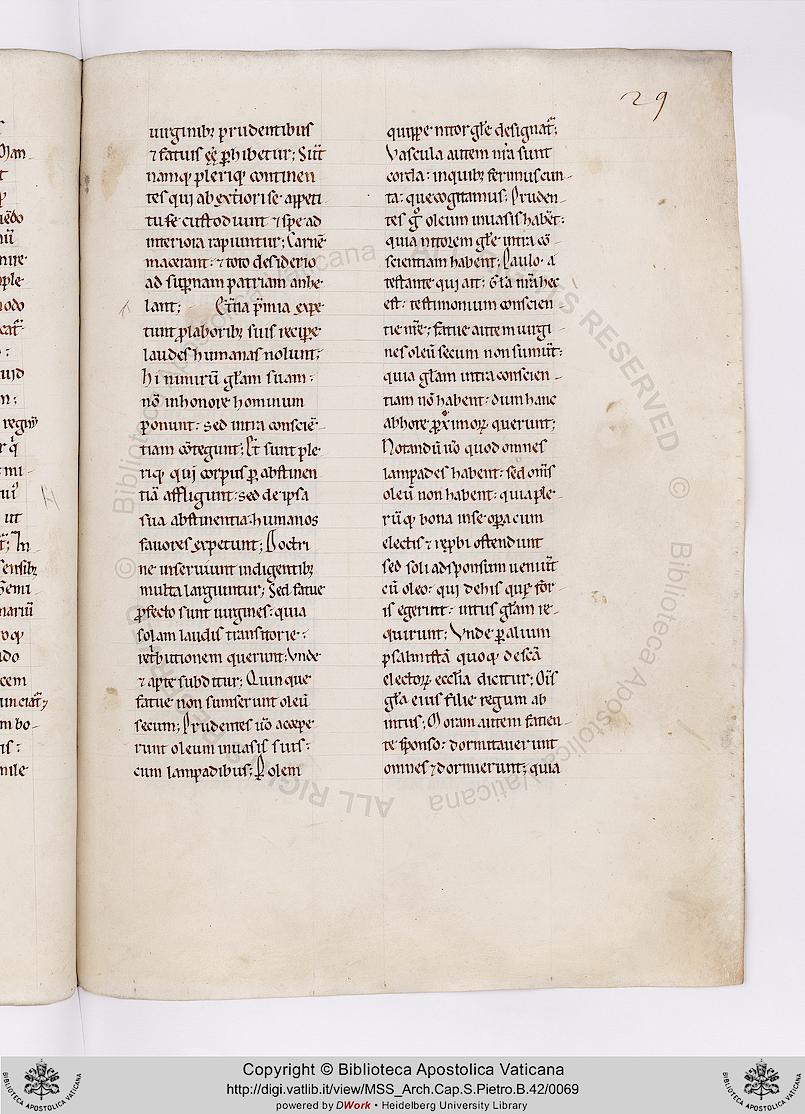 29
uirginibꝫ prudentibus
⁊ fatuis eē ꝑhibetur; Sūt
namqꝫ pleriqꝫ continen
tes qui ab exteriori se appeti
tu se custodiunt ⁊ spe ad
interiora rapiuntur; Carnē
macerant: ⁊ toto desiderio
ad suꝑnam patriam anhe
lant; Et̄na p̄mia expe
tunt ꝓlaboribꝫ suis recipe
laudes humanas nolunt;
hi nimirū gl̄am suam:
nō in honore hominum
ponunt: sed intra consciē
tiam cōtegunt; Et sunt ple
riqꝫ qui corpus ꝑ abstinen
tiā affligunt: sed de ipsa
sua abstinentia: humanos
fauores expetunt; Doctri
ne inseruiunt indigentibꝫ
multa largiuntur; Sed fatue
ꝓfecto sunt uirgines: quia
solam laudis transitorie:
ret̄butionem querunt; Vnde
⁊ apte subditur; Quinque
fatue non sumserunt oleū
secum; Prudentes ūo accepe
runt oleum in uasis suis:
cum lampadibus; Ꝑ olem
quippe nitor gl̄e designat̄;
Vascula autem nr̄a sunt
corda: in quibꝫ ferimus cun
ta: que cogitamus; Pruden
tes gͦ oleum in uasis habēt:
quia nitorem gl̄e intra cō
scientiam habent; Paulo a
testante qui ait: Gl̄a nr̄a hec
est: testimonium conscien
tie nr̄e; fatue autem uirgi
nes oleū secum non sumūt:
quia gl̄am intra conscien
tiam nō habent: dum hanc
ab hore ꝓximorꝫ querunt;
Notandū ūo quod omnes
lampades habent: sed om̄s
oleū non habent: quia ple
rūqꝫ bona in se opera cum
electis ⁊ rep̄bi ostendunt
sed soli ad sponsum ueniūt
cū oleo: qui de his que for
is egerunt: intus gl̄am re
quirunt; Vnde ꝑ alium
psalmistā quoqꝫ de sc̄a
electorꝫ ecclīa dicitur; Om̄s
gl̄a eius filie regum ab
intus; Moram autem facien
te sponso: dormitauerunt
omnes ⁊ dormierunt; quia
Biblioteca Apostolica Vaticana
ALL RIGHTS RESERVED
© Biblioteca Apostolica Vaticana
ALL RIGHTS RESERVED ©
Copyright © Biblioteca Apostolica Vaticana
http://digi.vatlib.it/view/MSS_Arch.Cap.S.Pietro.B.42/0069
powered by DWork • Heidelberg University Library
BIBLIOTECA APOSTOLICA VATICANA
BIBLIOTECA APOSTOLICA VATICANA